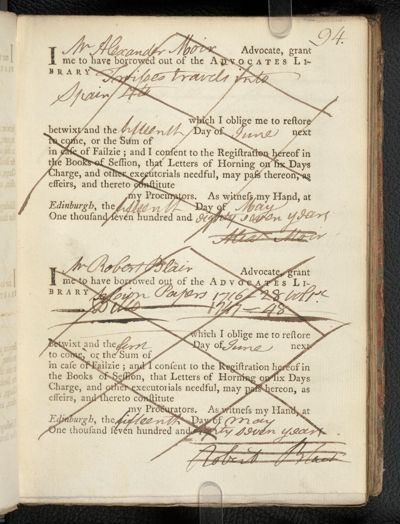 94.
I Mr Alexander Moir Advocate, grant
me to have borrowed out of the ADVOCATES LI-
BRARY Swinburnes travels into
Spain 4to
which I oblige me to reſtore
betwixt and the fifteenth Day of June next
to come, or the Sum of
in caſe of Failzie ; and I conſent to the Regiſtration hereof in
the Books of Seſſion, that Letters of Horning on ſix Days
Charge, and other executorials needful, may paſs thereon, as
effeirs, and thereto conſtitute
my Procurators. As witneſs my Hand, at
Edinburgh, the fifteenth Day of May
One thouſand ſeven hundred and eighty seven years
Alexr Moir
I Mr Robert Blair Advocate, grant
me to have borrowed out of the ADVOCATES LI-
BRARY Session Papers
Ditto
which I oblige me to reſtore
betwixt and the Day of June next
to come, or the Sum of
in caſe of Failzie ; and I conſent to the Regiſtration hereof in
the Books of Seſſion, that Letters of Horning on ſix Days
Charge, and other executorials needful, may paſs hereon, as
effeirs, and thereto conſtitute
my Procurators. As witneſs my Hand, at
Edinburgh, the fifteenth Day of May
One thouſand ſeven hundred and eighty seven years
Robert Blair